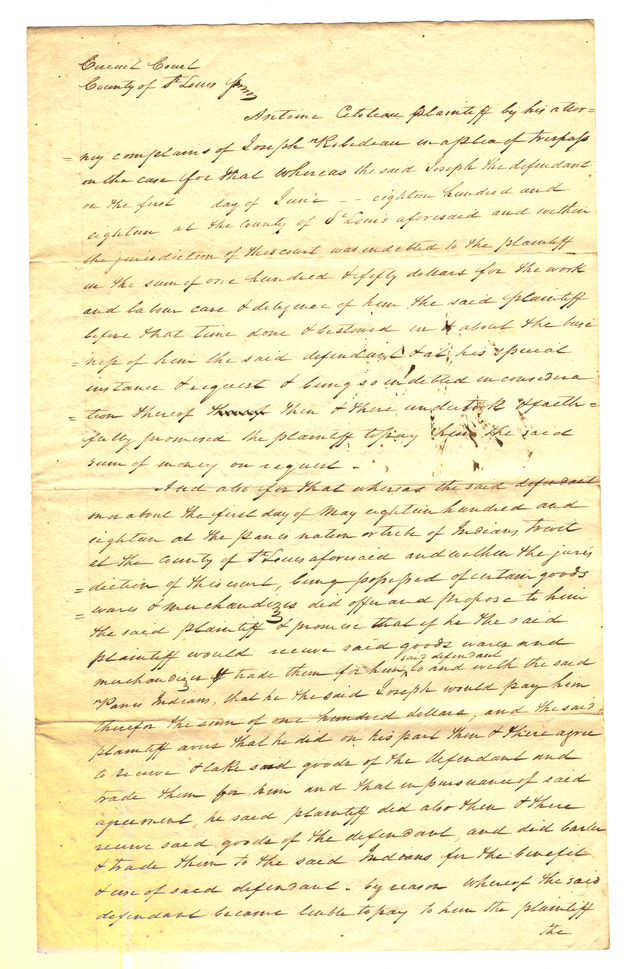 Circuit Court
County of St Louis
Antoine Citoleau plaintiff by his attor-
=ney complains of Joseph Robedeau in a plea of trespass
on the case for that whereas the said Joseph the defendant
on the first day of June -- eighteen hundred and
eighteen at the County of St Louis aforesaid and within
the jurisdiction of this court was indebted to the plaintiff
in the sum of one hundred & fifty dollars for the work
and labour care & diligence of him the said plaintiff
before that time done & bestowed in & about the busi
=ness of him the said defendant & at his special
instance & request & being so indebted in considera
=tion thereof then & there undertook & faith=
fully promised the plaintiff to pay him the said
sum of money on request -
And also for that whereas the said defendant
on or about the first day of May eighteen hundred and
eighteen at the Panis nation or tribe of Indians to wit
at the County of St Louis aforesaid and within the juris
=diction of this court, being possessed of certain goods
=wares & merchandizes did offer and propose to him
the said plaintiff & promise that if he the said
plaintiff would receive said goods wares and
merchandizes & trade them for him said defendant to and with the said
Panis Indians, that he the said Joseph would pay him
therefor the sum of one hundred dollars, and the said
plaintiff avers that he did on his part then & there agree
to receive & take said goods of the defendant and
trade them for him and that in pursuance of said
agreement, he said plaintiff did also then & there
receive said goods of the defendant, and did barter
& trade them to the said Indians for the benefit
& use of said defendant - by reason whereof the said
defendant became liable to pay to him the plaintiff
the